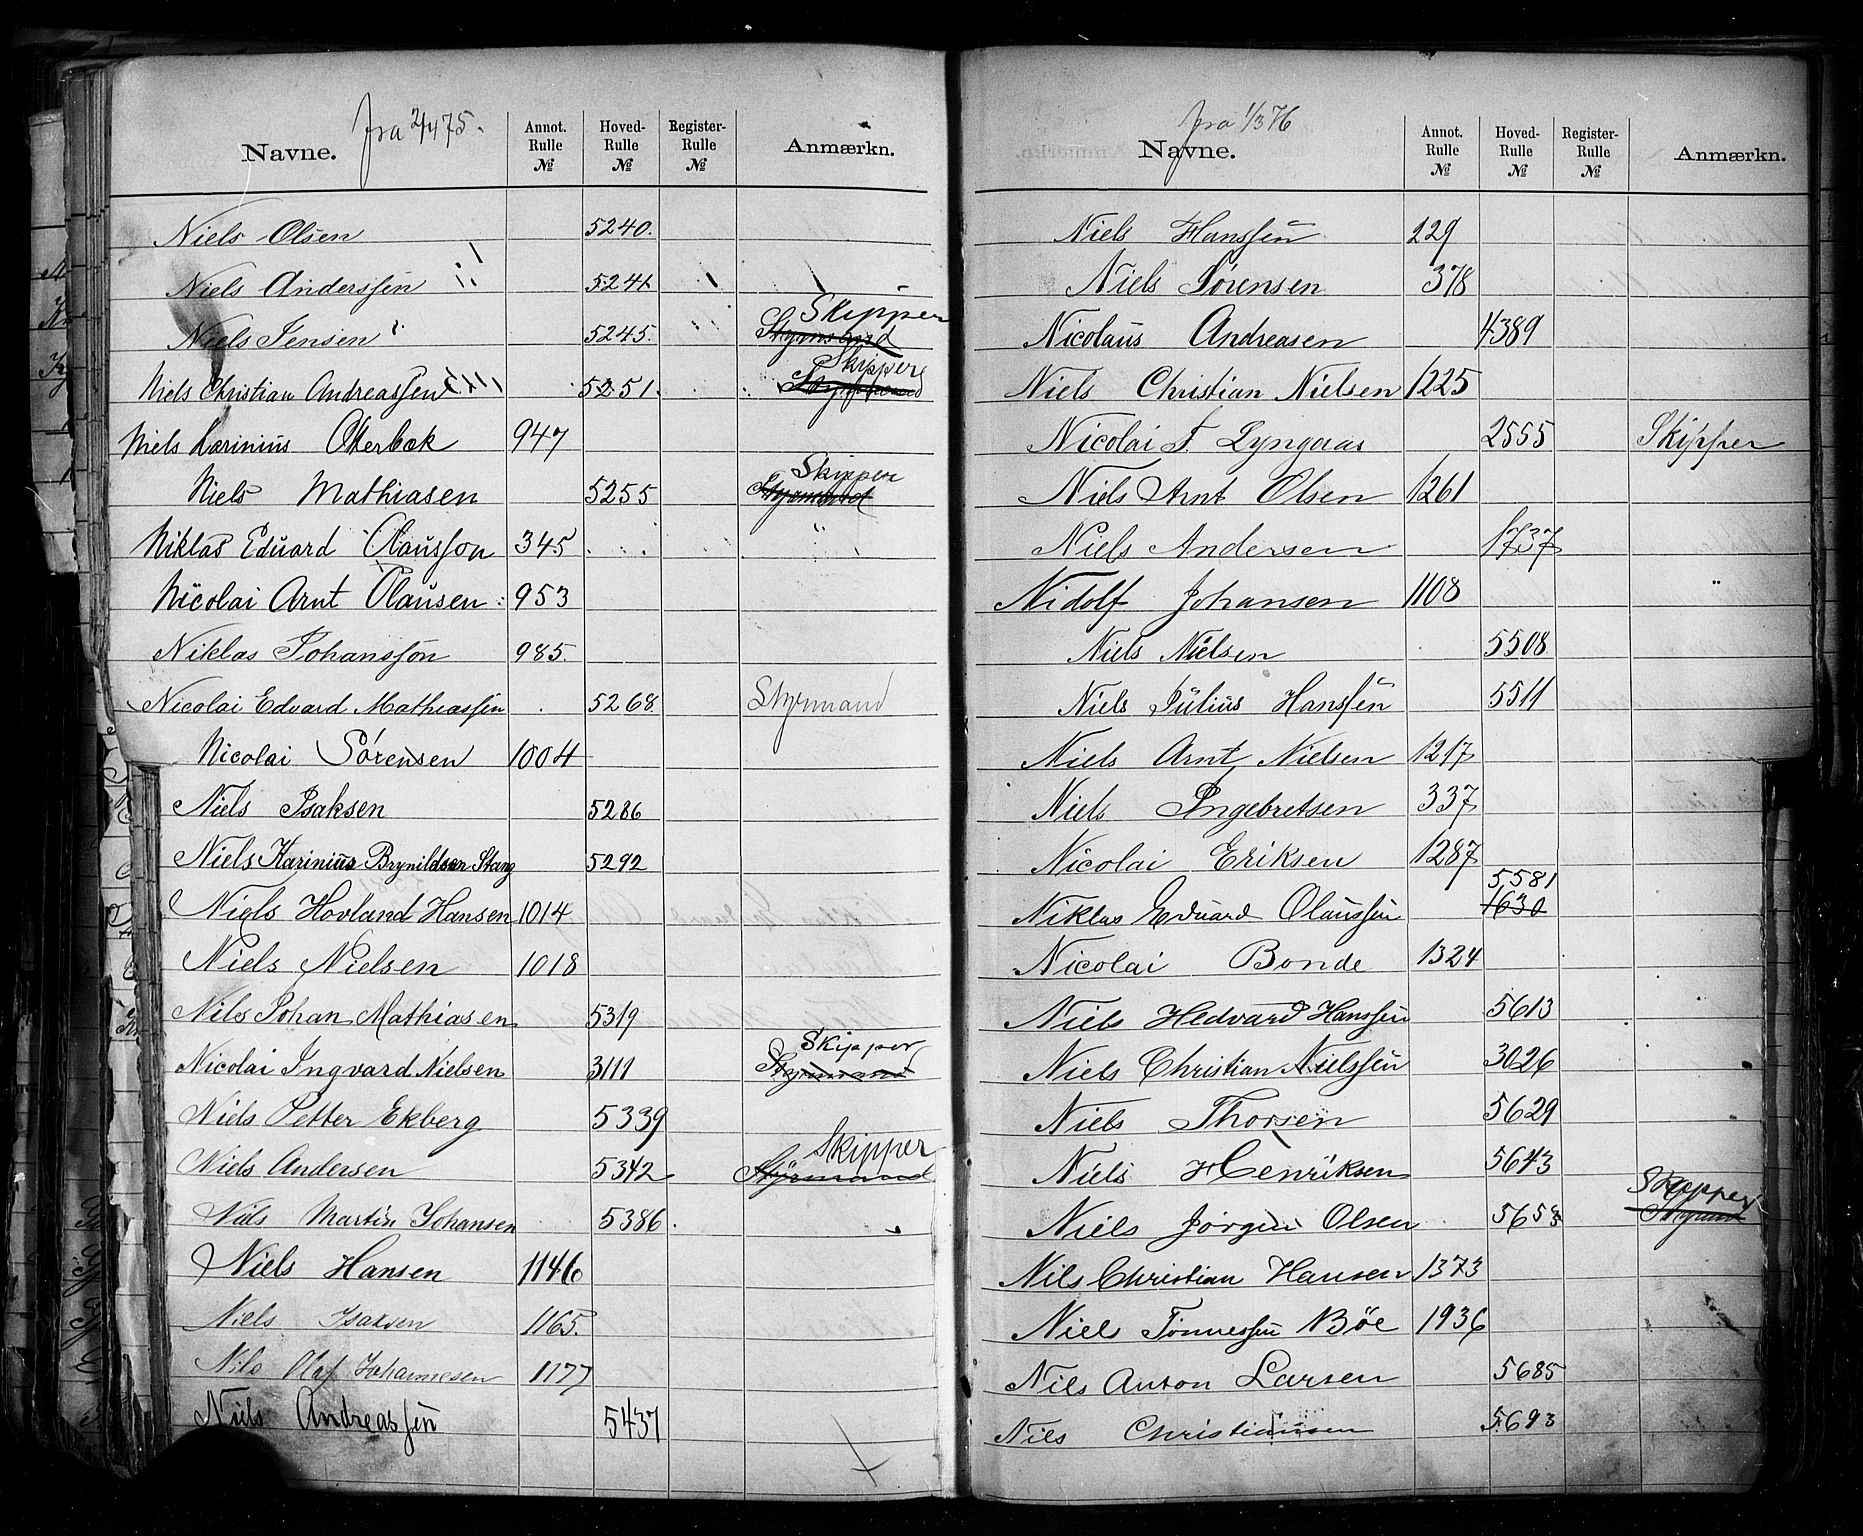 fra 2/4 75.
Navne. Annot. Rulle № Hoved-Rulle № Register-Rulle № Anmærkn.
Niels Olsen 5240.
Niels Anderssen 5241
Niels Jensen 5245. Styrmand Skipper
Niels Christian Andreassen 5251. Skipper
Niels Larinius Otterbek 947
Niels Mathiasen 5255 Styrmand Skipper
Niklas Eduard Olausson 345
Nicolai Arnt Olausen 953
Niklas Johansson 985.
Nicolai Edvard Mathiassen 5268 Styrmand
Nicolai Sörensen 1004
Niels Isaksen 5286
Niels Karinius Brynildsen Stang 5292
Niels Hovland Hansen 1014
Niels Nielsen 1018
Nils Johan Mathiasen 5319
Nicolai Ingvard Nielsen 3111 Styrmand Skipper
Niels Petter Ekberg 5339
Niels Andersen 5342 Styrmand Skipper
Niels Martin Johansen 5386.
Niels Hansen 1146
Niels Isaksen 1165.
Nils Olaf Johannesen 1177
Niels Andreassen 5437
fra 1/3 76
Navne. Annot. Rulle № Hoved-Rulle № Register-Rulle № Anmærkn.
Niels Hanssen 229
Niels Sørensen 378
Nicolaus Andreasen 4389
Niels Christian Nielsen 1225
Nicolai F. Lyngaas 2555 Skipper
Niels Arnt Olsen 1261
Niels Andersen 1737
Nidolf Johansen 1108
Niels Nielsen 5508
Niels Julius Hanssen 5511
Niels Arnt Nielsen 1217
Niels Ingebretsen 337
Nicolai Eriksen 1287
Niklas Eduard Olaussen 1630 5581
Nicolai Bonde 1324
Niels Hedvard Hanssen 5613
Niels Christian Nielssen 3026
Niels Thorsen 5629
Niels Henriksen 5643
Niels Jörgen Olsen 5653 Skipper
Nils Christian Hansen 1373
Niels Tønnessen Böe 1936
Nils Anton Larsen 5685
Nils Christiansen 5693